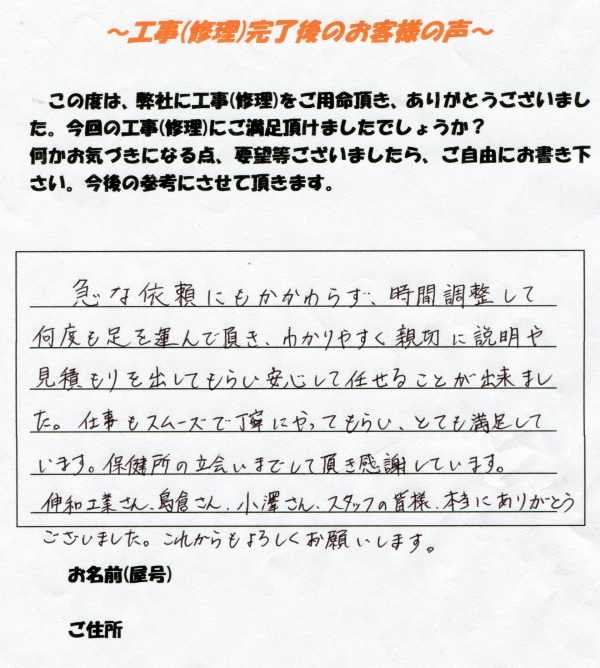 ～工事(修理)完了後のお客様の声～
この度は、弊社に工事(修理)をご用命頂き、ありがとうございまし
た。今回の工事(修理)にご満足頂けましたでしょうか？
何かお気づきになる点、要望等ございましたら、ご自由にお書き下
さい。今後の参考にさせて頂きます。
急な依頼にもかかわらず、時間調整して
何度も足を運んで頂き、わかりやすく親切に説明や
見積もりを出してもらい安心して任せることが出来まし
た。仕事もスムーズで丁寧にやってもらい、とても満足して
います。保健所の立会いまでして頂き感謝しています。
伸和工業さん、島倉さん、小澤さん、スタッフの皆様、本当にありがとう
ございました。これからもよろしくお願いします。
お名前(屋号)
ご住所